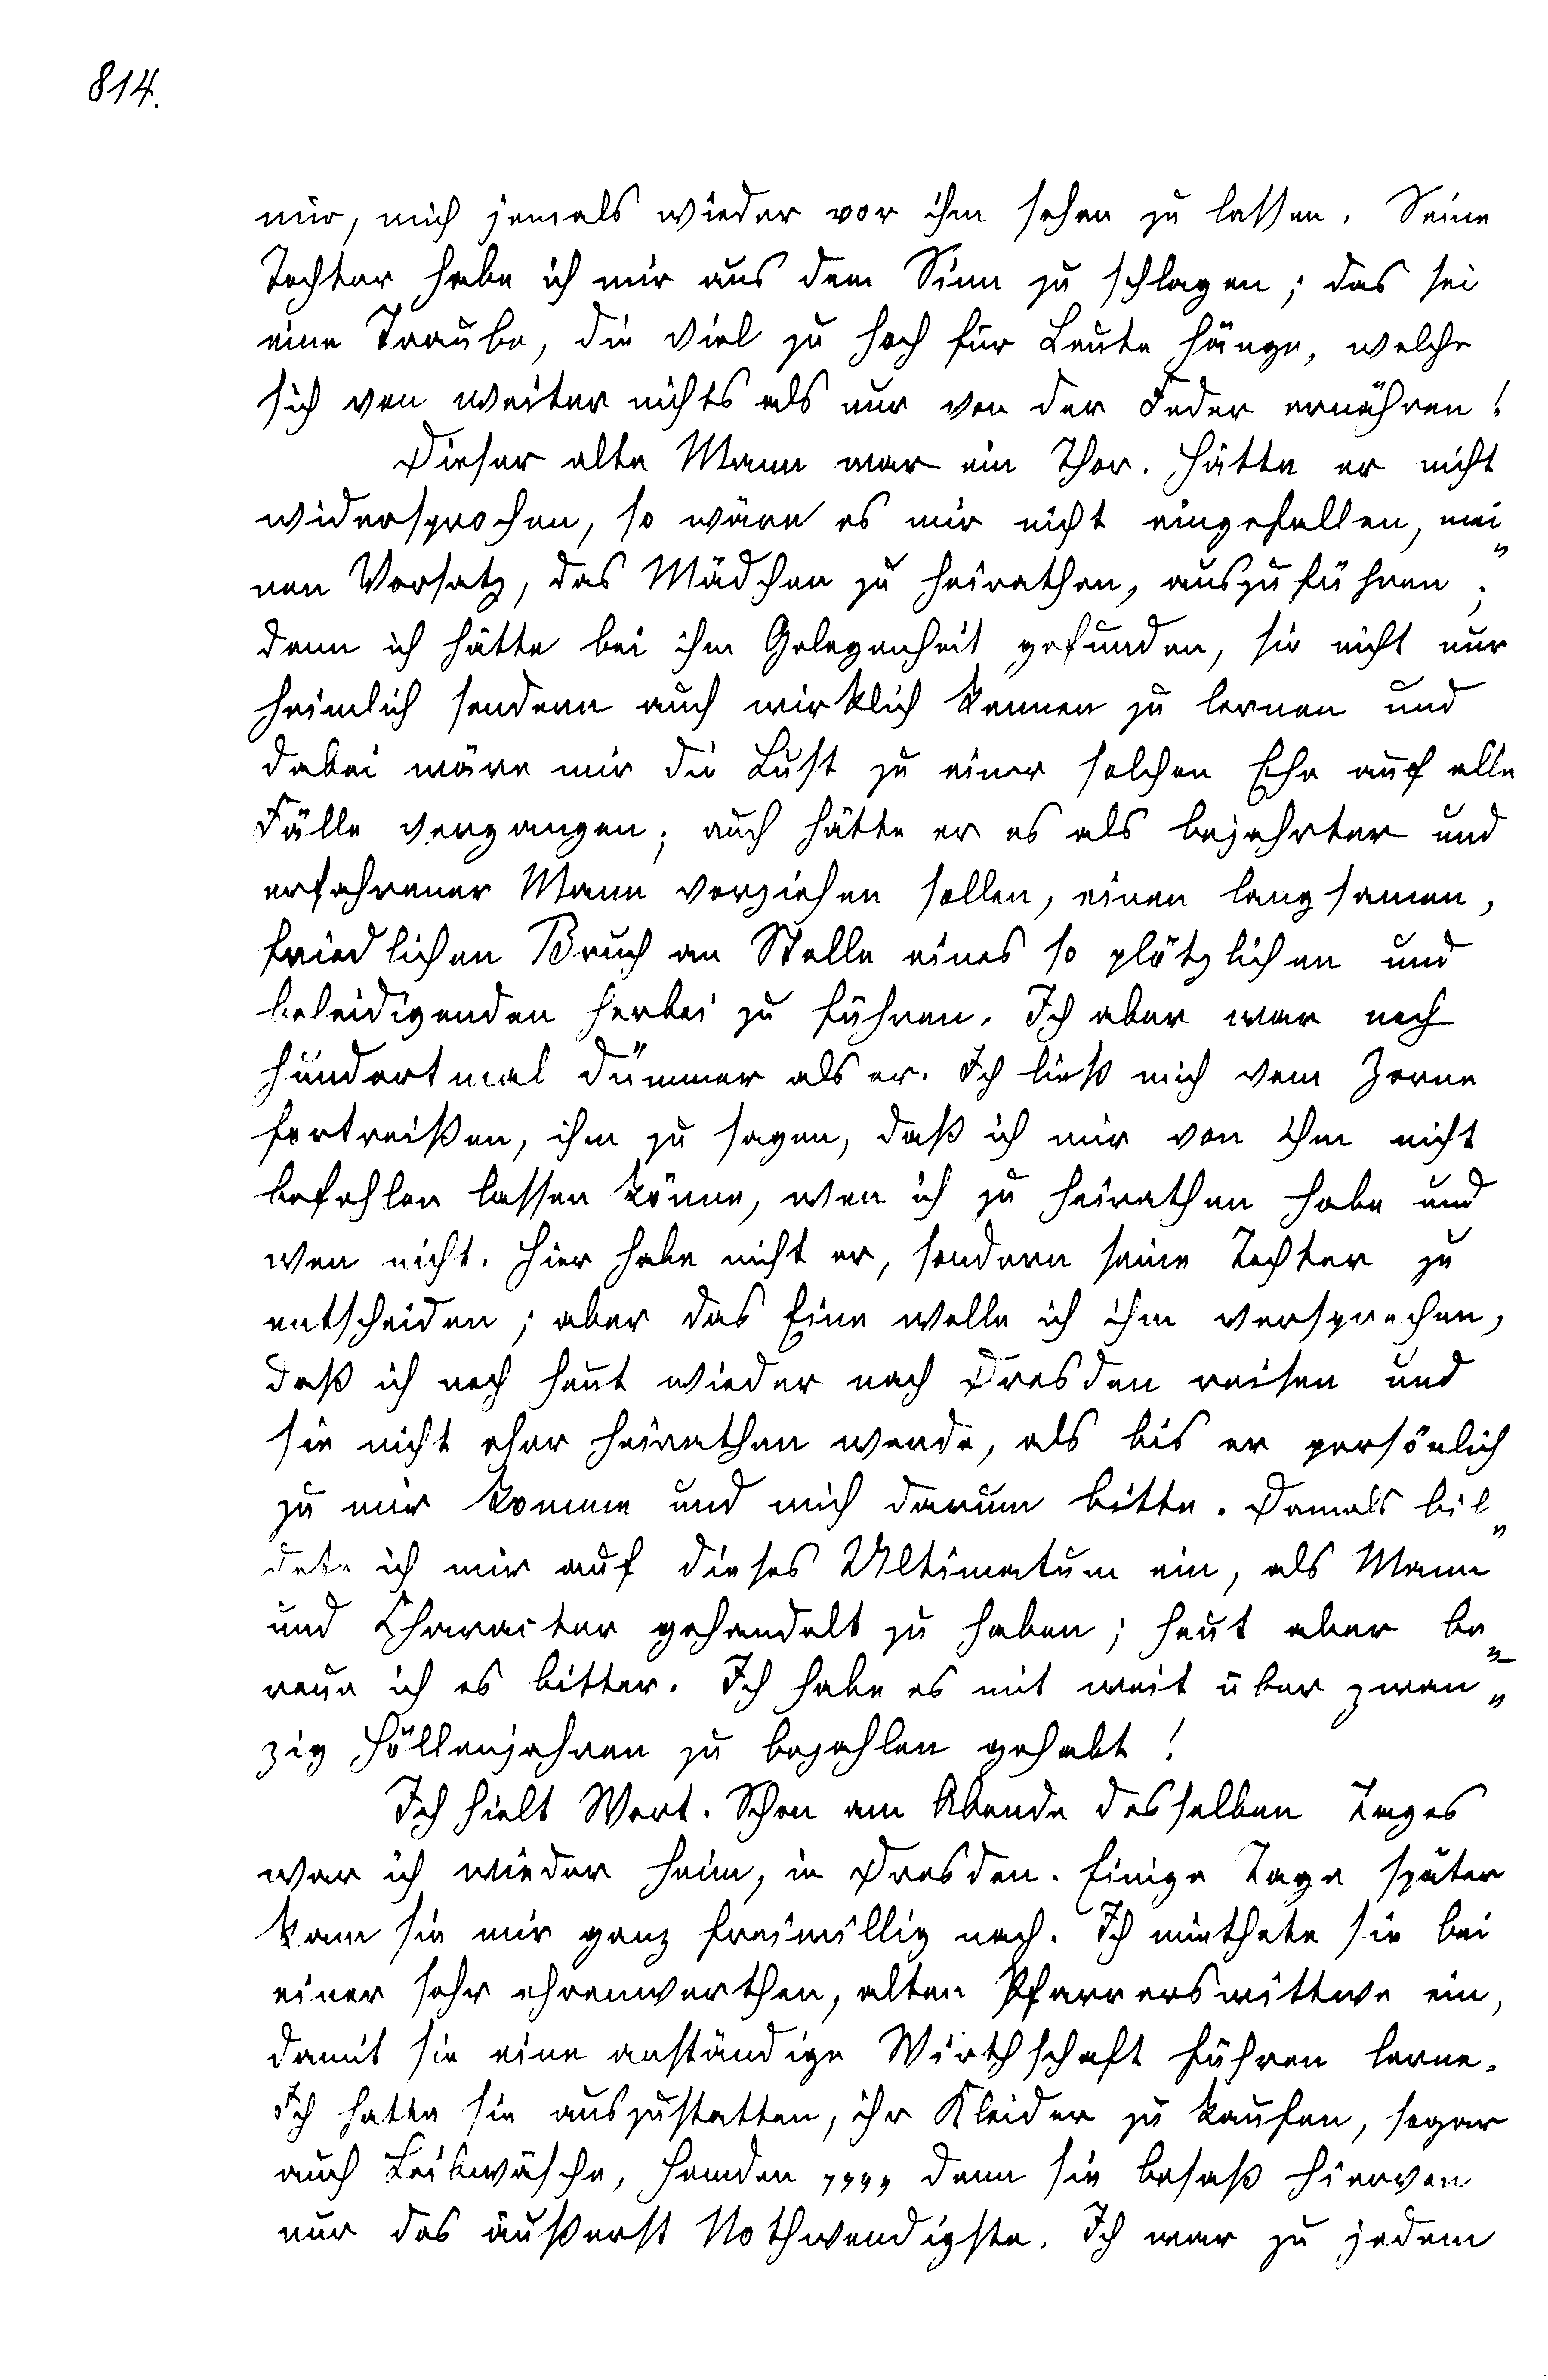 814.
mir, mich jemals wieder vor ihm sehen zu lassen. Seine
Tochter habe ich mir aus dem Sinn zu schlagen; das sei
eine Traube, die viel zu hoch für Leute hänge, welche
sich von weiter nichts als nur von der Feder ernähren!
Dieser alte Mann war ein Thor. Hätte er nicht
widersprochen, so wäre es mir nicht eingefallen, mei„
nen Vorsatz, das Mädchen zu heirathen, auszuführen;
denn ich hätte bei ihm Gelegenheit gefunden, sie nicht nur
heimlich sondern auch wirklich kennen zu lernen und
dabei wäre mir die Lust zu einer solchen Ehe auf alle
Fälle vergangen; auch hätte er es als bejahrter und
erfahrener Mann vorziehen sollen, einen langsamen,
friedlichen Bruch an Stelle eines so plötzlichen und
beleidigenden herbei zu führen. Ich aber war noch
hundertmal dümmer als er. Ich ließ mich vom Zorne
fortreißen, ihm zu sagen, daß ich mir von ihm nicht
befehlen lassen könne, wen ich zu heirathen habe und
wen nicht. Hier habe nicht er, sondern seine Tochter zu
entscheiden; aber das Eine wolle ich ihm versprechen,
daß ich noch heut wieder nach Dresden reisen und
sie nicht eher heirathen werde, als bis er persönlich
zu mir komme und mich darum bitte. Damals bil„
dete ich mir auf dieses Ultimatum ein, als Mann
und Character gehandelt zu haben; heut aber be„
reue ich es bitter. Ich habe es mit weit über zwan„
zig Höllenjahren zu bezahlen gehabt!
Ich hielt Wort. Schon am Abende desselben Tages
war ich wieder heim, in Dresden. Einige Tage später
kam sie mir ganz freiwillig nach. Ich miethete sie bei
einer sehr ehrenwerthen, alten Pfarrerswittwe ein,
damit sie eine anständige Wirthschaft führen lerne.
Ich hatte sie auszustatten, ihr Kleider zu kaufen, sogar
auch Leibwäsche, Hemden ,,,, denn sie besaß hiervon
nur das äußerst Nothwendigste. Ich war zu jedem